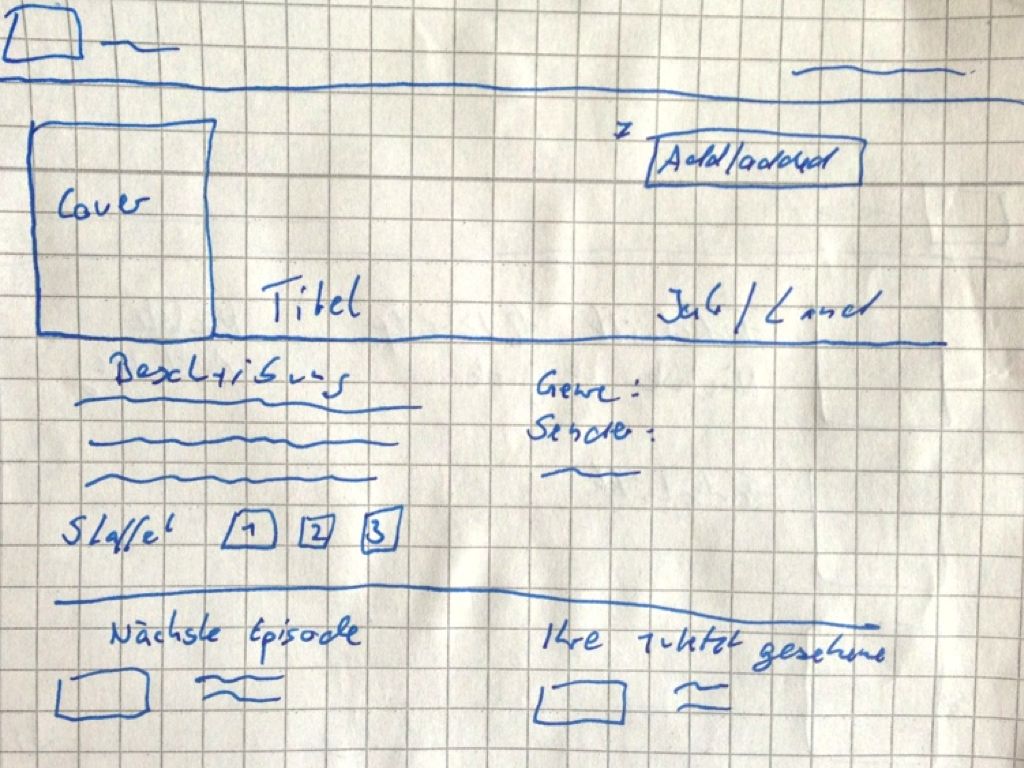 Add/added
Cover
Titel
Jahr / Land
Beschreibung
Genre :
Sender :
Staffel 1 2 3
Nächste Episode
Ihre zuletzt gesehene